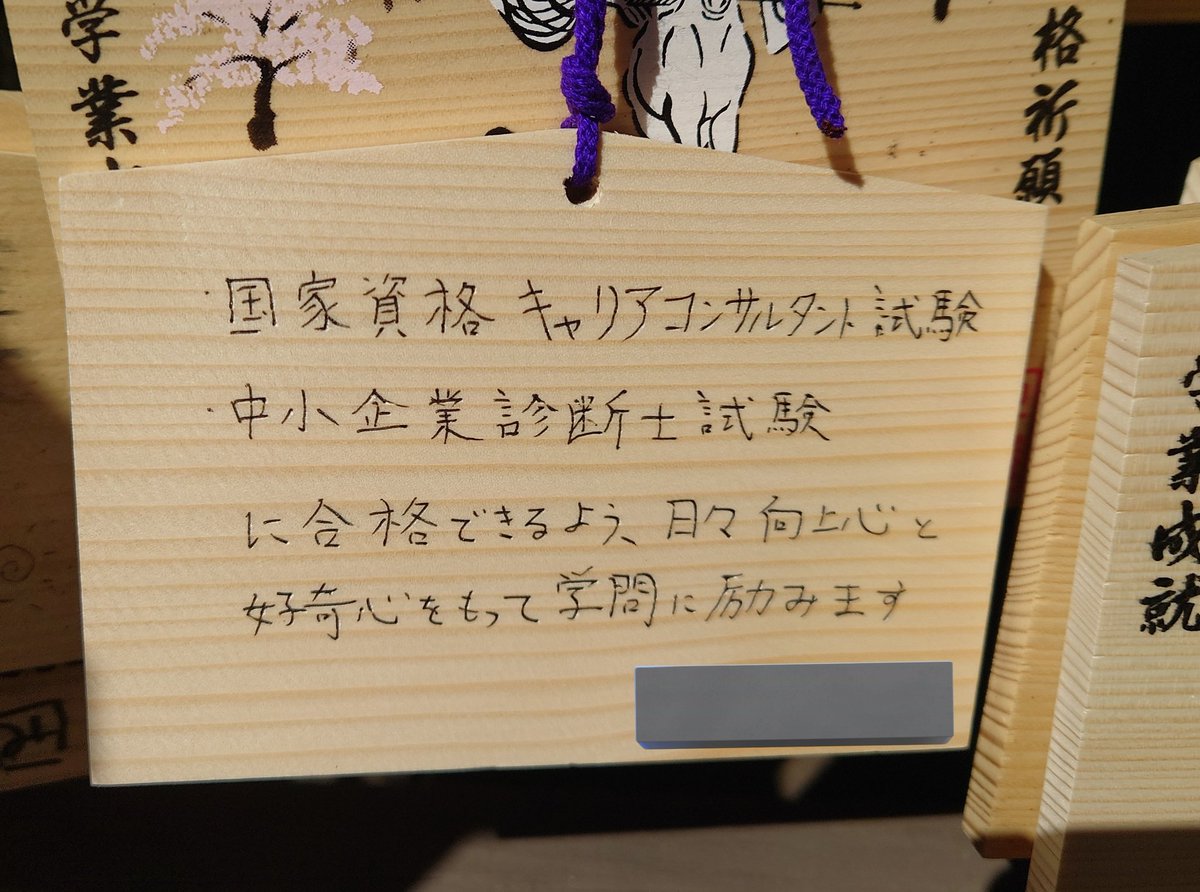 学業
格祈願
・国家資格 キャリアコンサルタント試験
・中小企業診断士試験
に合格できるよう、日々向上心と
好奇心をもって学問に励みます
学業成就